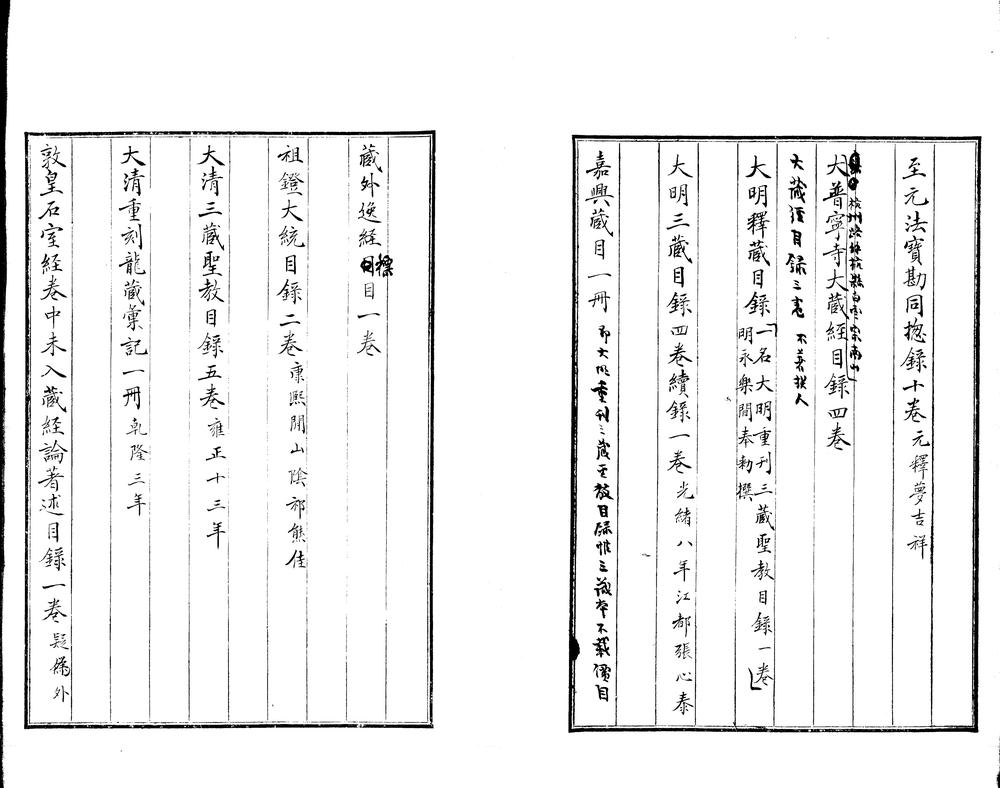 至元法寶勘同揔錄十卷元釋夢吉祥
杭州餘杭縣白雲宗南山
大普寧寺大蔵經目錄四卷
大藏經目録三卷 不著撰人
大明釋蔵目錄「一名大明重刊三蔵聖教目錄一卷」
明永樂間奉勅撰
大明三蔵目錄四卷續錄一卷光緒八年江都張心泰
嘉興蔵目一冊 即大明重刊三蔵聖教目録惟三蔵本不載價目
蔵外逸經標目一卷
祖鐙大統目錄二卷康熙間山陰祁熊佳
大清三蔵聖教目錄五卷雍正十三年
大清重刻龍蔵彙記一冊乾隆三年
敦皇石室經卷中未入蔵經論著述目錄一卷疑偽外